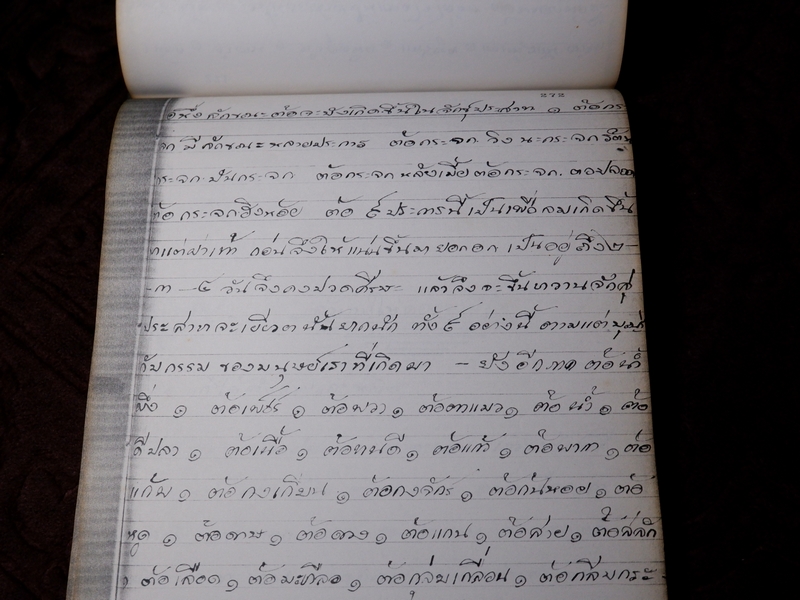 ๒๗๒
ลักษณะต้อจะบังเกิดขึ้นในจักษุประสาท ๑ ต้อกระ
จก มีลักษณะหลายประการ ต้อกระจก วิง นะกระจก
กระจก ปันกระจก ต้อกระจกหลังเนื้อ ต้อกระจก
ต้อกระจกหิงหอย ต้อ ๙ ประการนี้เป็นเพื่อลมเกิดขึ้น
แต่ฝ่าเท้า ก่อนจึงให้แน่นขึ้นมายอกอก เป็นอยู่ถึง ๒ -
- ๓ - ๔ วันจึงคงปวดศีรษะ แล้วจึงจะขึ้นหวานจักษุ
ประสาท จะเยียวยานั้นยากนัก ทั้ง ๙ อย่างนี้ ตามแต่บุญ
กับกรรม ของมนุษย์เราที่เกิดมา - ยังอีกภาค ต้อน้ำ
ผึ้ง ๑ ต้อเพชร์ ๑ ต้อพวา ๑ ต้อตาแมว ๑ ต้อน้ำ ๑ ต้อ
ดีปลา ๑ ต้อเนื้อ ๑ ต้อทนดี ๑ ต้อแก้ว ๑ ต้อพาก ๑ ต้อ
แก้ม ๑ ต้อกงเกียน ๑ ต้อกงจักร ๑ ต้อก้นหอย ๑ ต้อ
หูด ๑ ต้อดาษ ๑ ต้อดวง ๑ ต้อแกน ๑ ต้อสาย ๑ ต้อสลัก
๑ ต้อเลือด ๑ ต้อมะเกลือ ๑ ต้อกลุ่มเกลื่อน ๑ ต้อกลีบกระ-